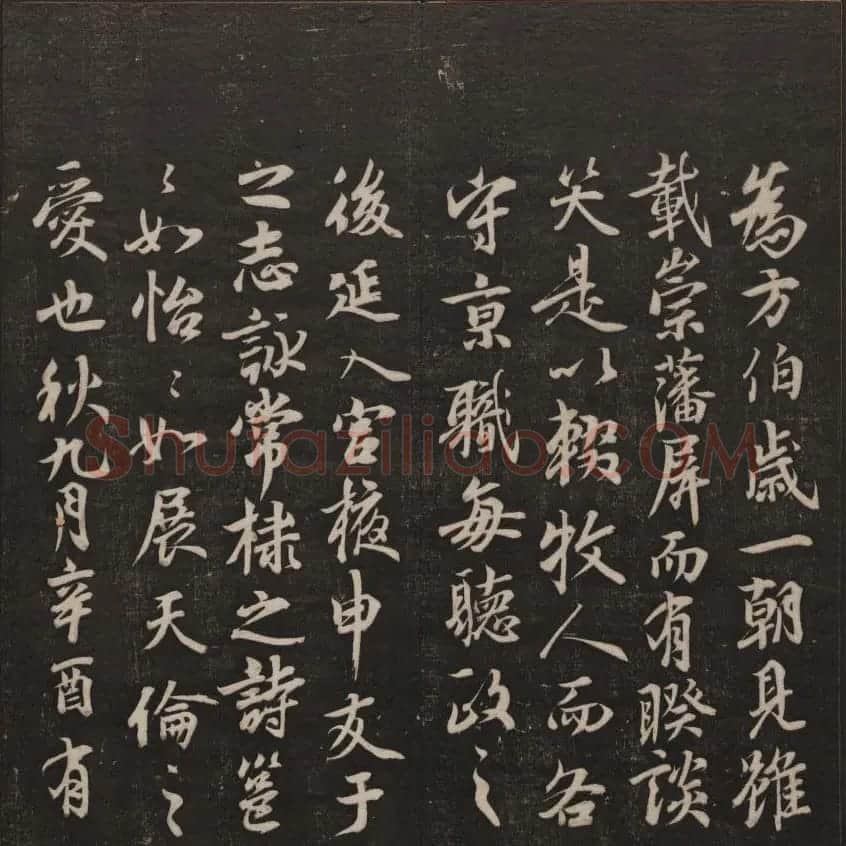 為方伯歲一朝見雖
載崇藩屏而有睽談
笑是以輟牧人而各
守京職每聽政之
後延入宮掖申友于
之志詠常棣之詩邕
〻如怡〻如展天倫之
愛也秋九月辛酉有
Shufaziliao.COM